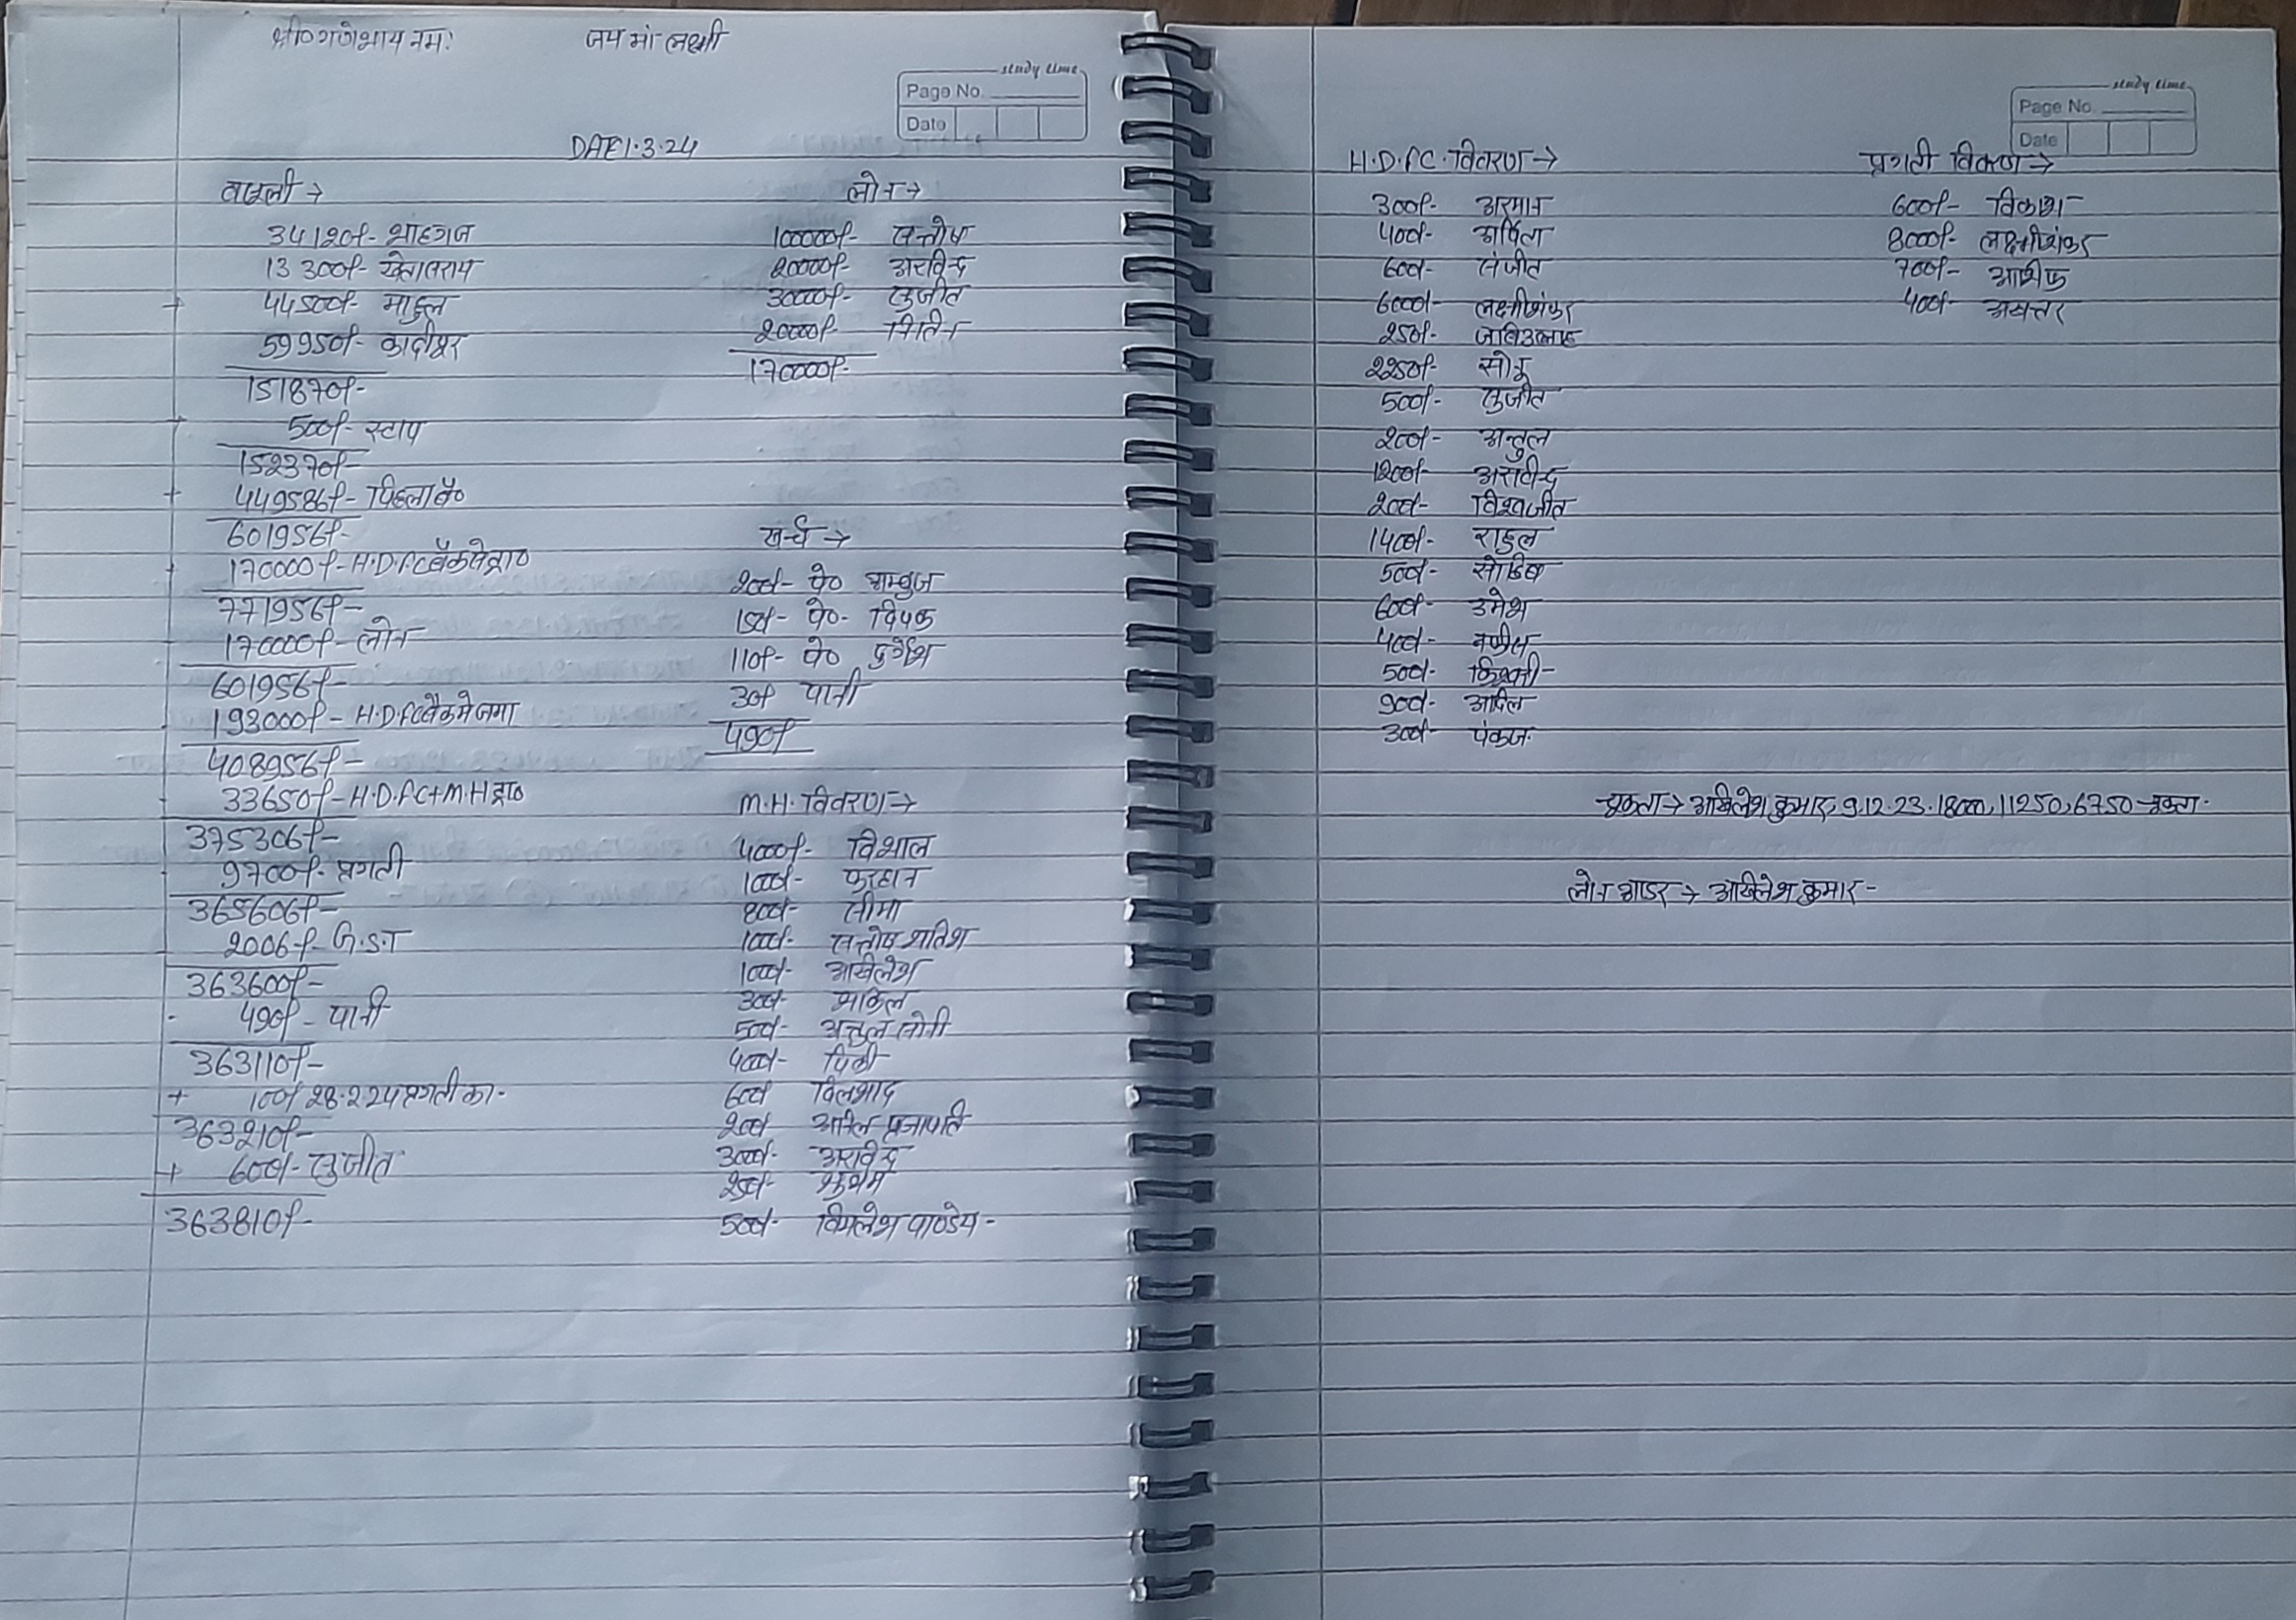 श्री० गणेशाय नमः जय मां लक्ष्मी
study time
Page No.
Date
DATE 1.3.24
वसूली →
34120/- शाहगंज
13300/- खेतासराय
+ 44500/- माहुल
59950/- कादीपुर
151870/-
500/- स्टाप
152370/-
+ 449586/- पिछला बै०
601956/-
170000/- H.D.F.C बैंक से ड्रा०
771956/-
- 170000/- लोन
601956/-
- 193000/- H.D.F.C बैंक मे जमा
408956/-
- 33650/- H.D.F.C+M.H ड्रा०
375306/-
- 9700/- प्रगती
365606/-
2006/- G.S.T
363600/-
- 490/- पानी
363110/-
+ 100/ 28.2.24 प्रगती का -
363210/-
+ 600/- सुजीत
363810/-
लोन →
100000/- सन्तोष
20000/- अरविन्द
30000/- सुजीत
20000/- नितिन
170000/-
खर्च →
200/- पे०
150/- पे०- दिपक
110/- पे० दुर्गेश
30/ पानी
490/
M.H. विवरण →
4000/- विशाल
1000/- फरहान
800/- सीमा
1000/- सन्तोष सतिश
1000/- अखिलेश
300/- शकिल
500/- अतुल सोनी
4000/- पिंकी
600/ दिलशाद
200/ अनिल प्रजापति
3000/- अरविन्द
250/- शुभम
500/- विमलेश पाण्डेय -
study time
Page No.
Date
H.D.F.C. विवरण →
300/- अरमान
400/- अर्पिता
600/- संजीत
6000/- लक्ष्मीशंकर
250/-
2250/- सोनू
500/- सुजीत
200/- अतुल
1200/- अरविन्द
200/- विश्वजीत
1400/- राहुल
500/-
600/- उमेश
400/-
500/-
900/- अनिल
300/- पंकज
प्रगती विवरण →
600/- विकाश
8000/- लक्ष्मीशंकर
700/- आशीफ
400/- अख्तर
चुकता → अखिलेश कुमार, 9.12.23.18000, 11250, 6750 चुकता.
लोन आडर → अखिलेश कुमार -